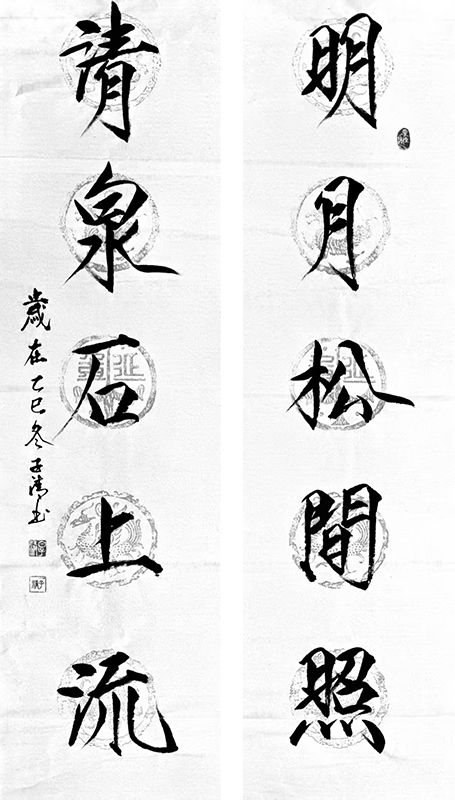 明月松間照
清泉石上流
歲在乙巳冬子清书